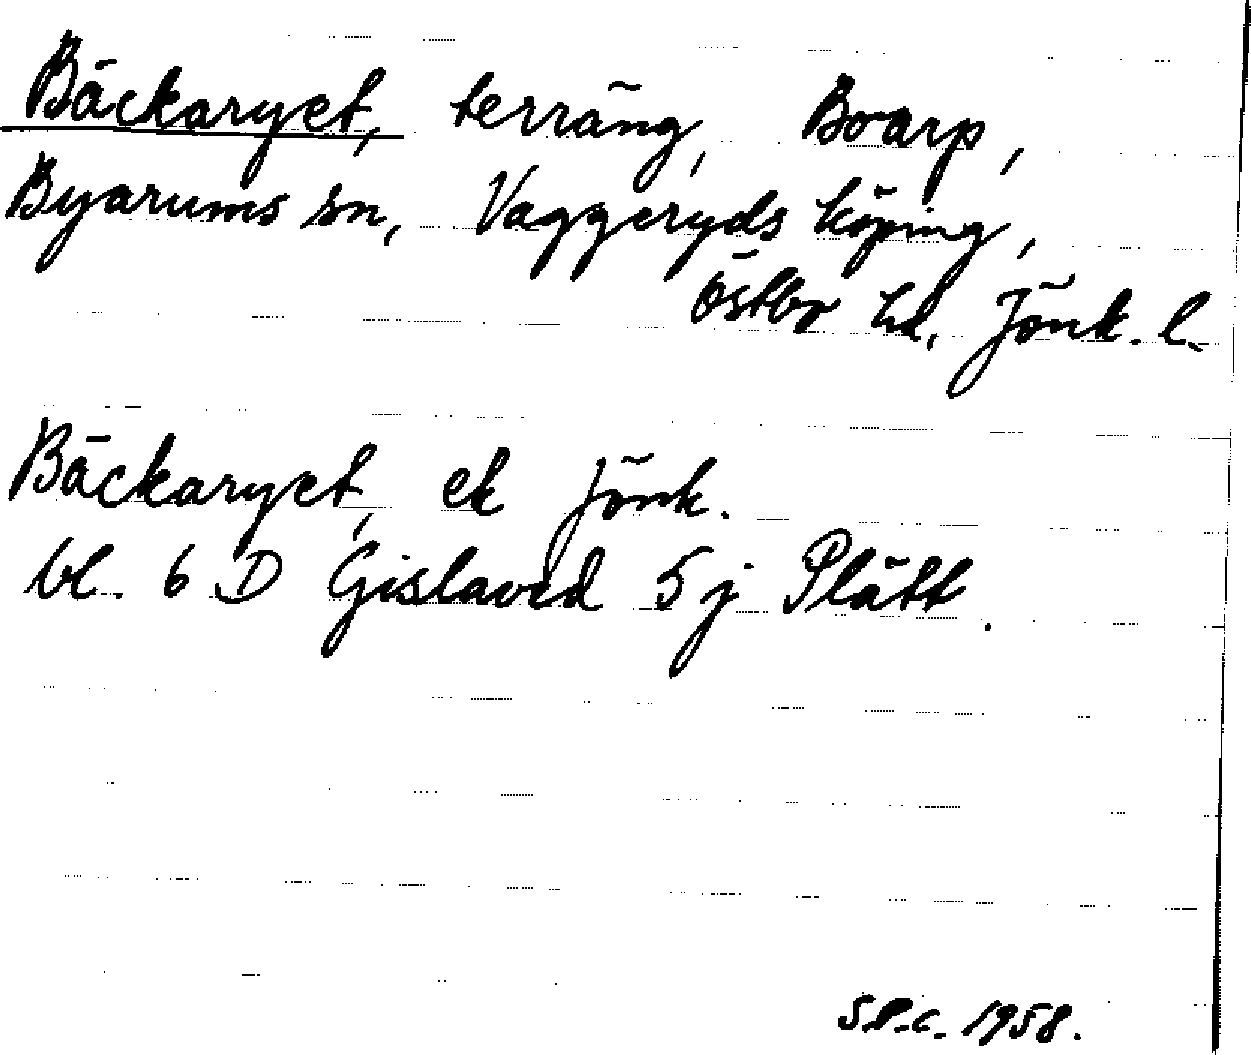 Bäckaryet, terräng, Boarp,
Byarums sn, Vaggeryds köping,
Östbo hd, Jönk. l.
Bäckaryet, ek Jönk.
bl. 6 D Gislaved 5 j Plätt.
S.P.C. 1958.